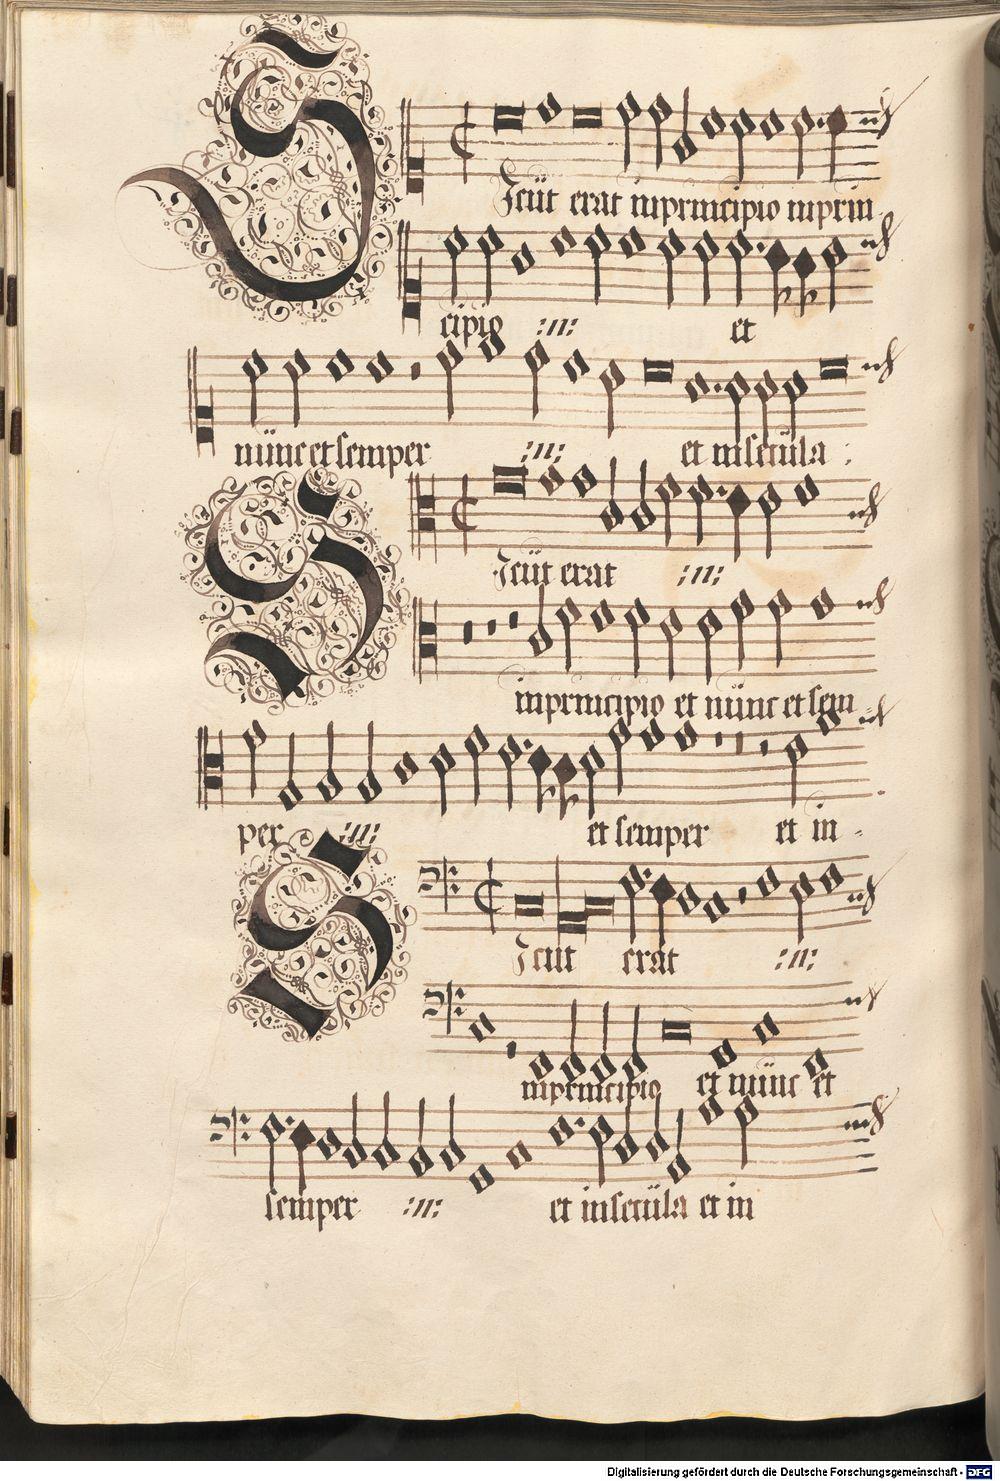 Sicut erat inprincipio inprin
cipio :n: et
nunc et semper :n: et insecula :
Sicut erat :n:
inprincipio et nunc et sem=
per :n: et semper et in=
Sicut erat :n:
inprincipio et nunc et
semper :n: et insecula et in
Digitalisierung gefördert durch die Deutsche Forschungsgemeinschaft - DFG